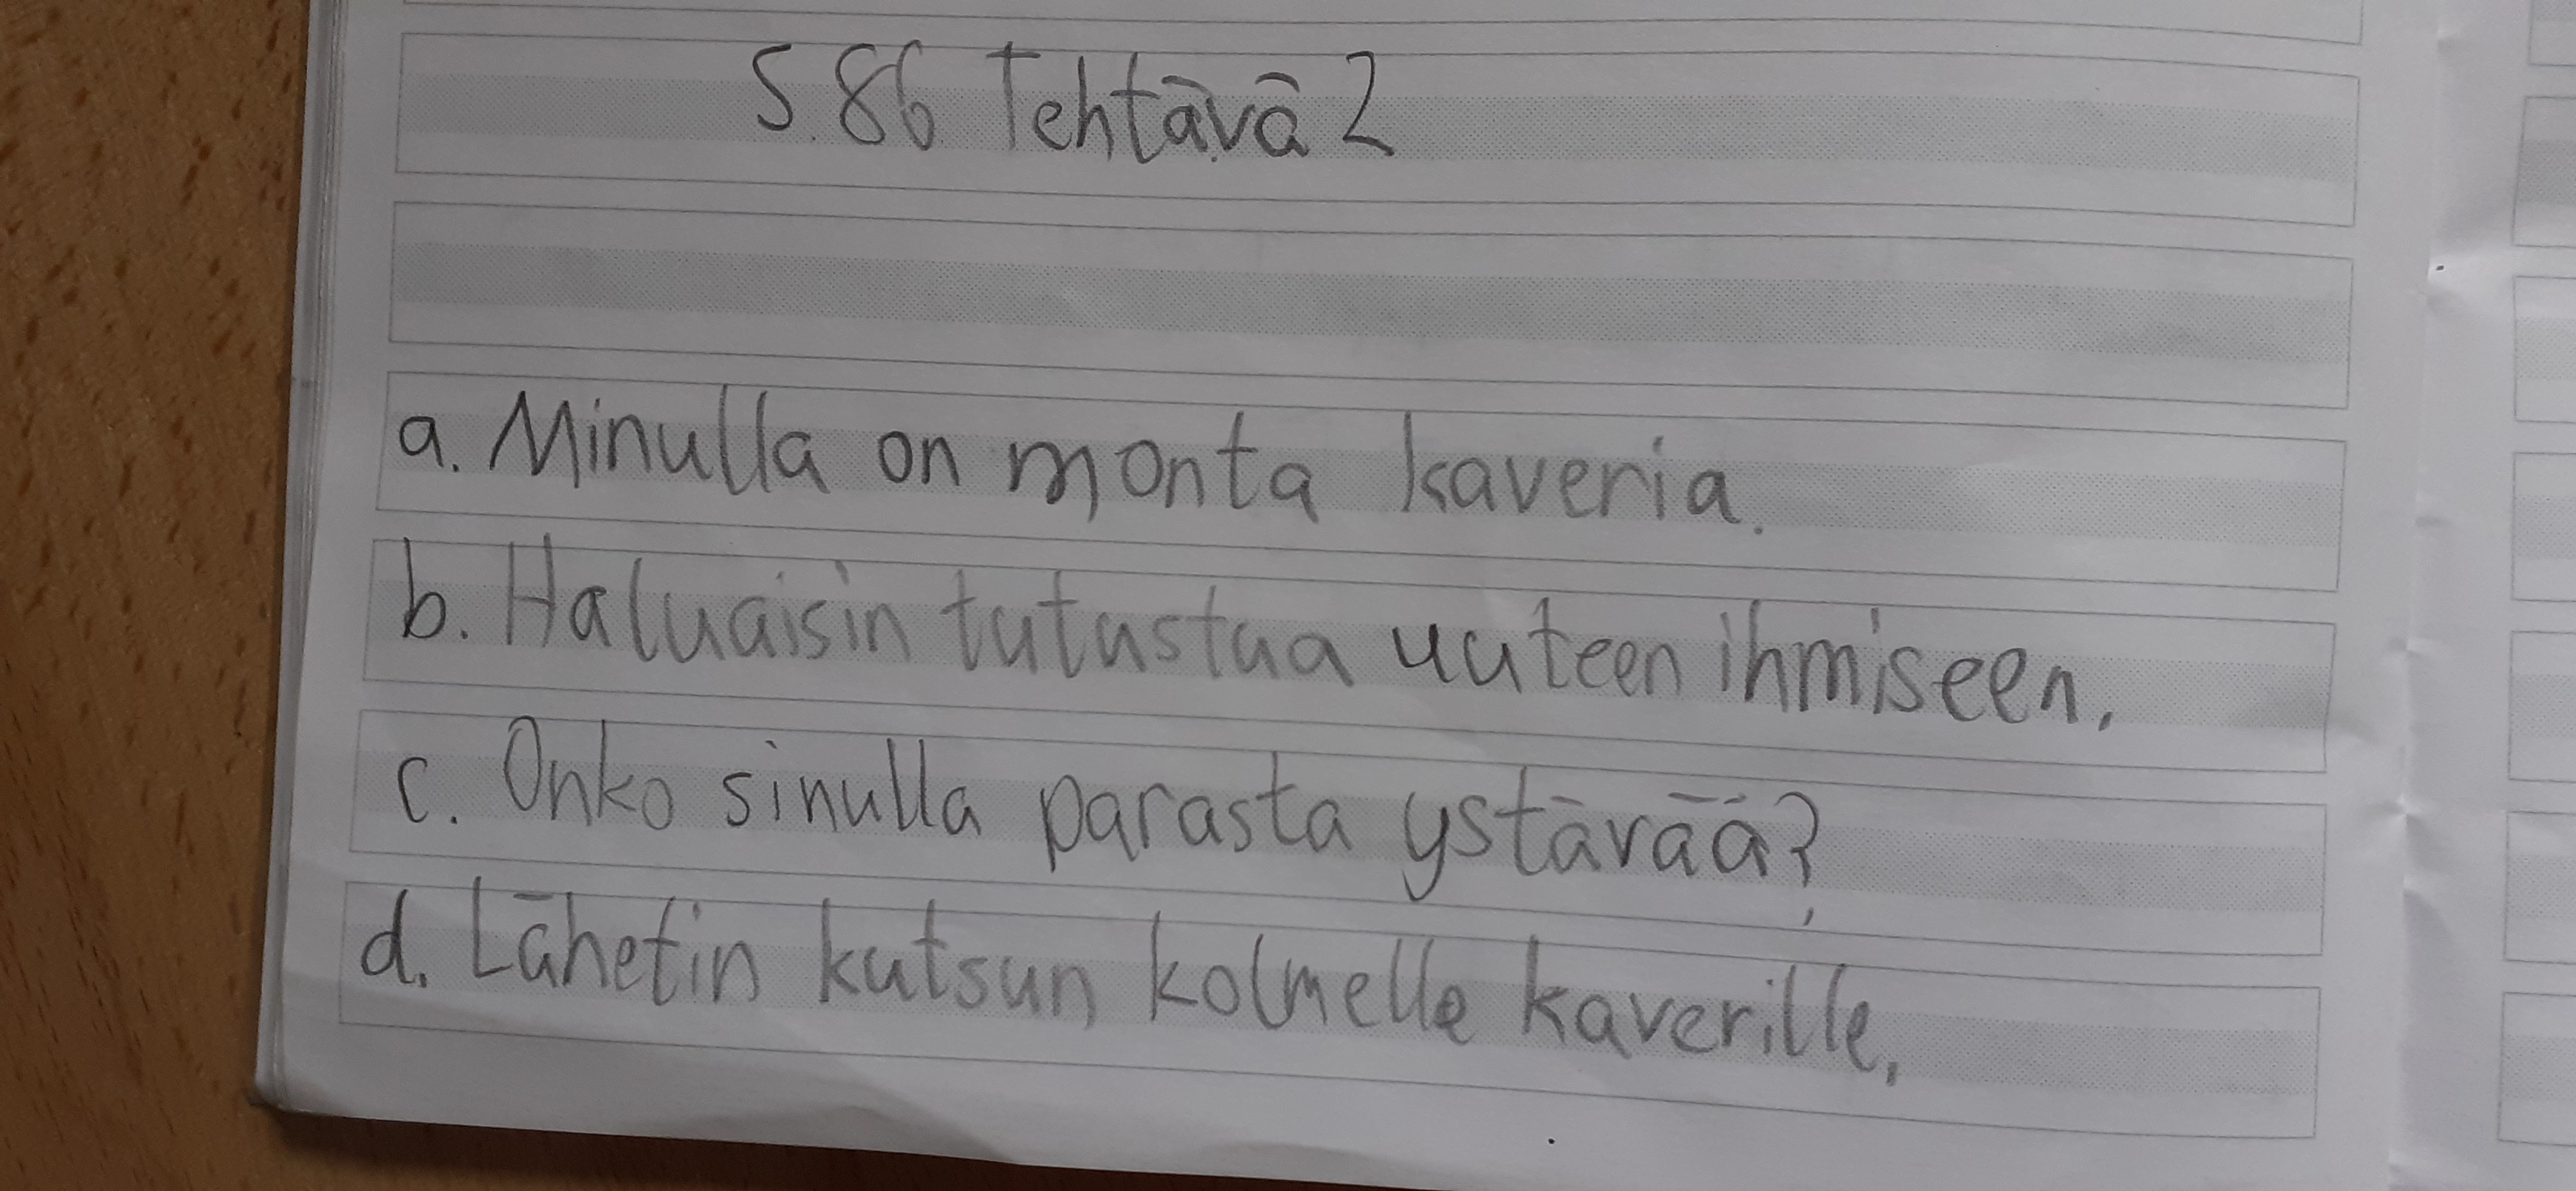 S.86 Tehtävä 2
a. Minulla on monta kaveria.
b. Haluaisin tutustua uuteen ihmiseen.
c. Onko sinulla parasta ystävää?
d. Lähetin kutsun kolmelle kaverille.